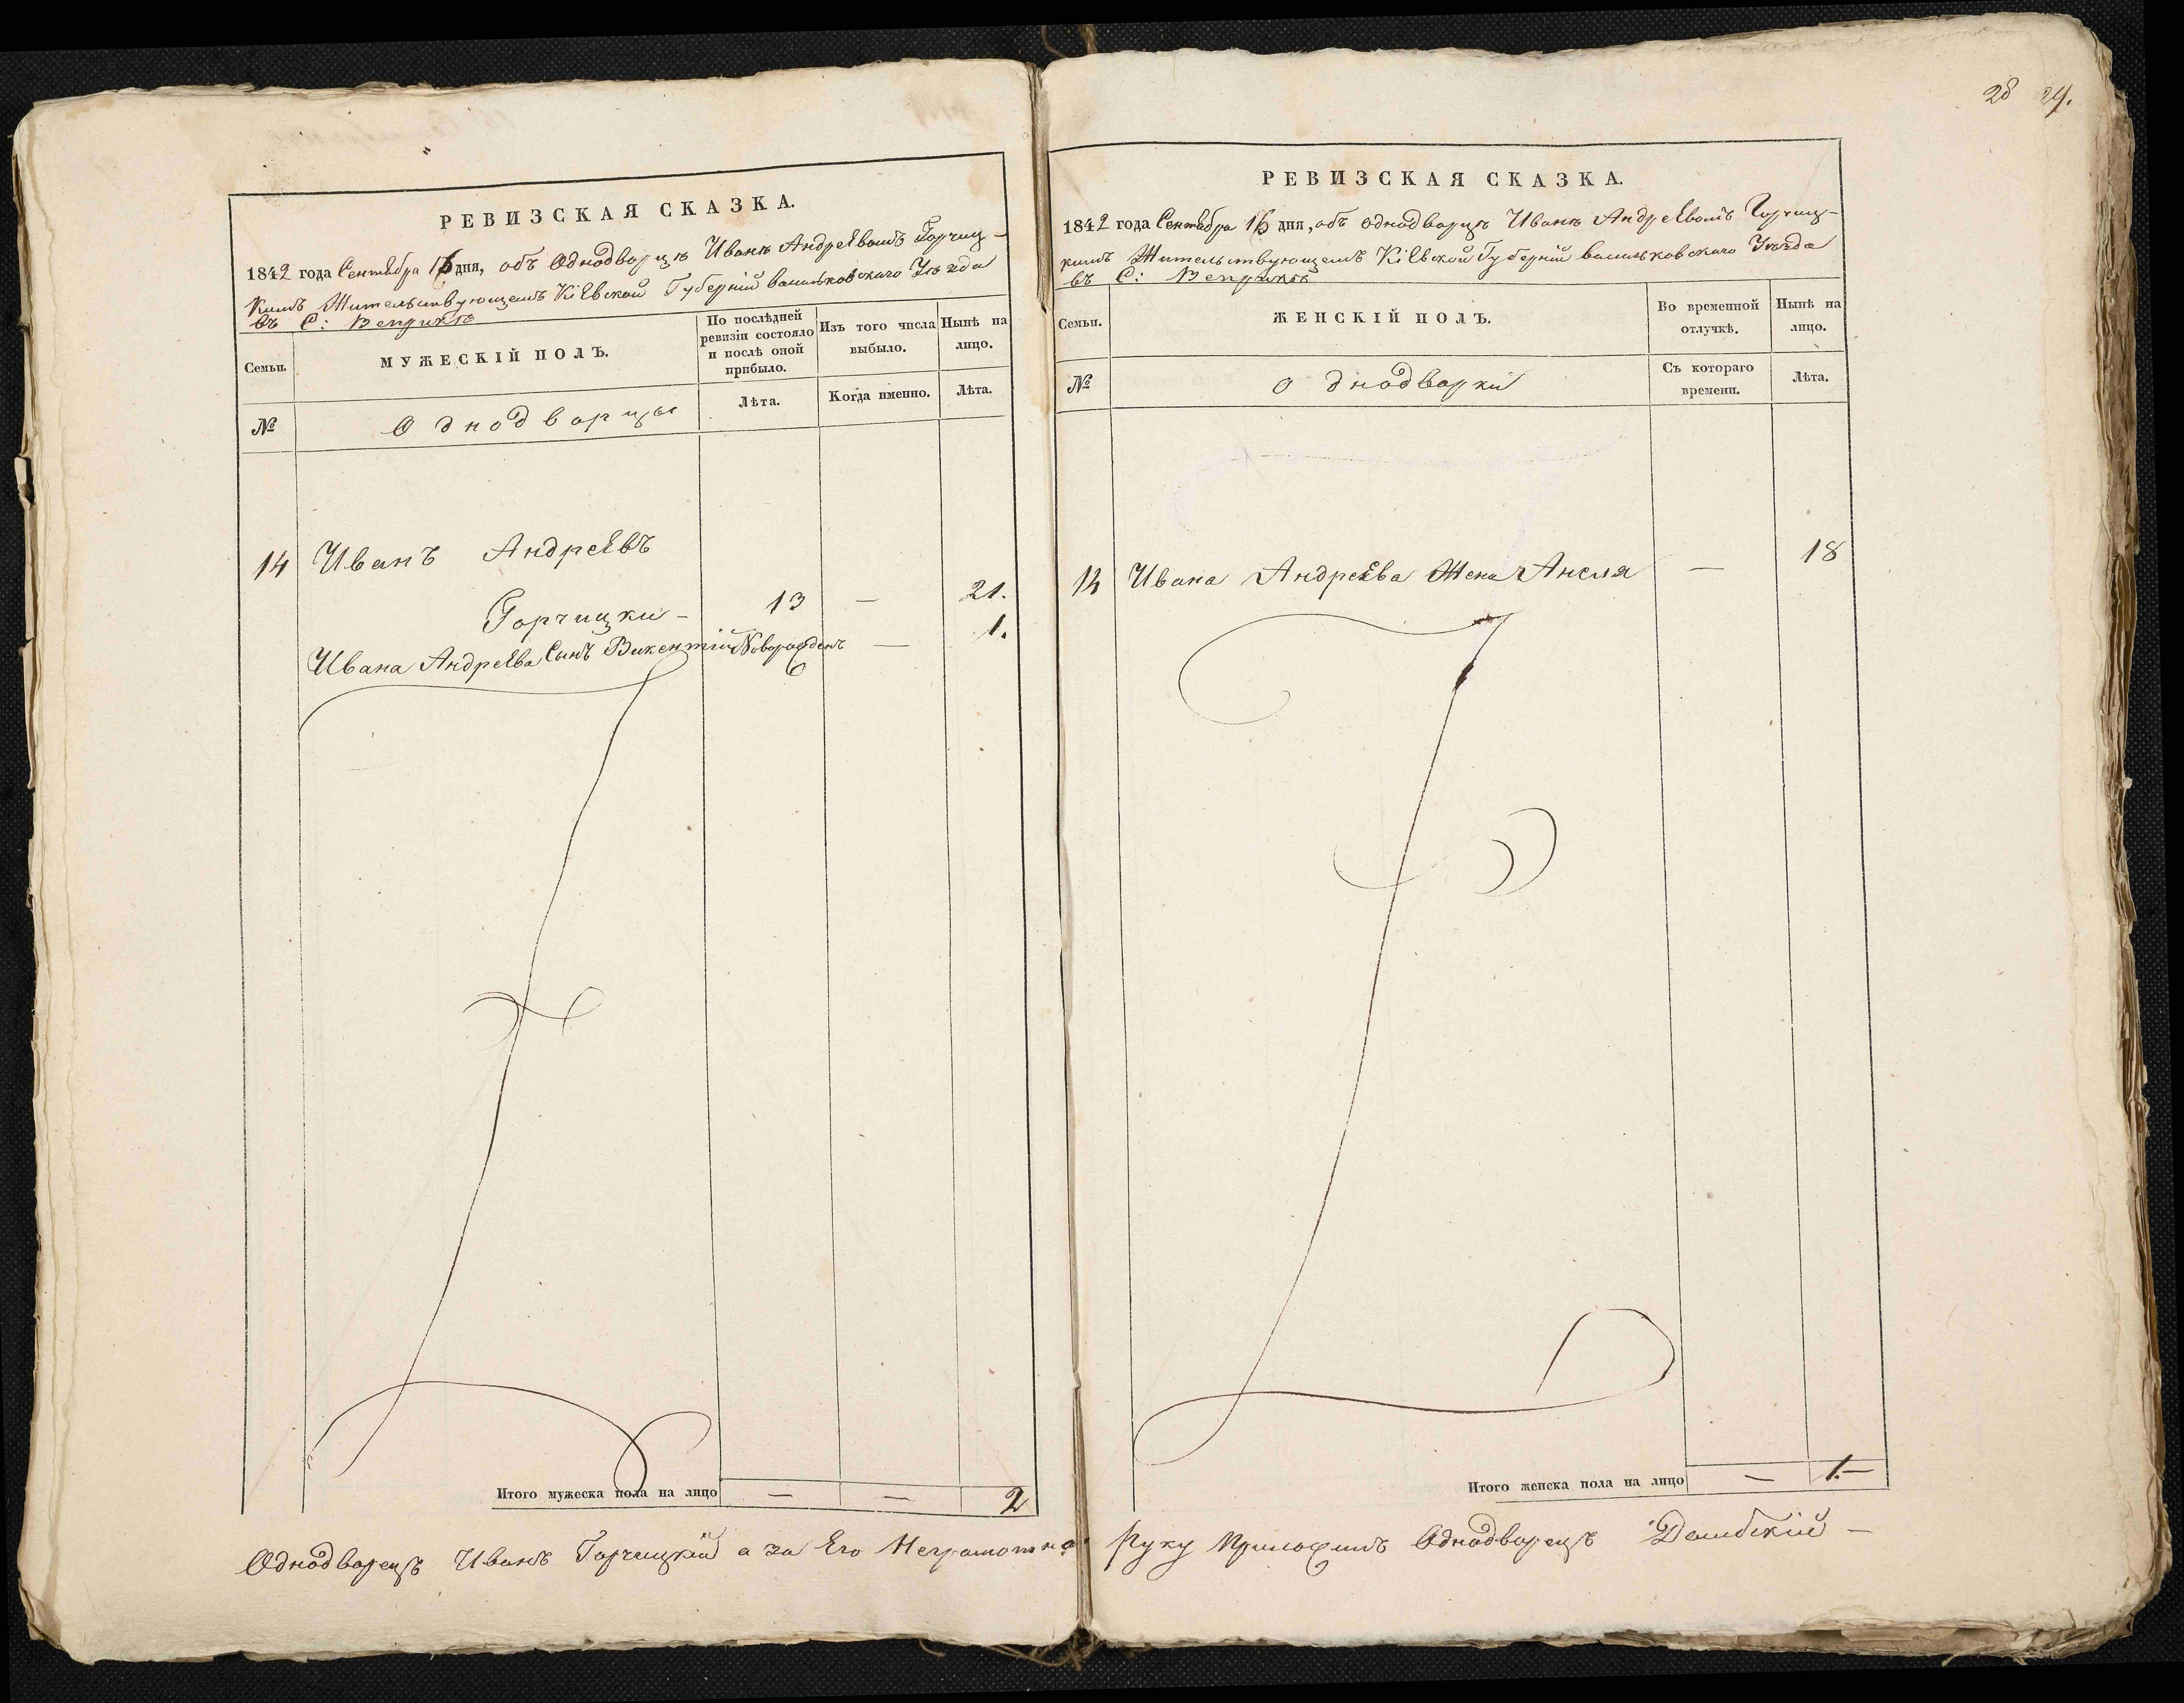 28 29.
РЕВИЗСКАЯ СКАЗКА.
1842 года Сентября 16 дня, объ Однодворцѣ Иванѣ Андреевомъ Горчиц-
кимъ Жительствующемъ Кіевской Губерніи васильковскаго Уѣзда
въ С: Веприкѣ
Семьи.
МУЖЕСКІЙ ПОЛЪ.
По послѣдней ревизіи состояло и послѣ оной прибыло.
Изъ того числа выбыло.
Нынѣ на лицо.
№
Однодворцы
Лѣта.
Когда именно.
Лѣта.
14 Иванъ Андреевъ
Горчицки- 13 — 21.
Ивана Андреева Сынъ Викентій Новорожденъ — 1.
Итого мужеска пола на лицо — — 2
РЕВИЗСКАЯ СКАЗКА.
1842 года Сентября 16 дня, объ однодворцѣ Иванѣ Андреевомъ Горчиц-
кимъ Жительствующемъ Кіевской Губерніи васильковскаго Уѣзда
въ С: Веприкѣ
Семьи.
ЖЕНСКІЙ ПОЛЪ.
Во временной отлучкѣ.
Нынѣ на лицо.
№
Однодворки
Съ котораго времени.
Лѣта.
14 Ивана Андреева Жена Анеля — 18
Итого женска пола на лицо — 1.—
Однодворецъ Иванъ Горчицкій а за Его Неграмотна Руку Приложилъ Однодворецъ —